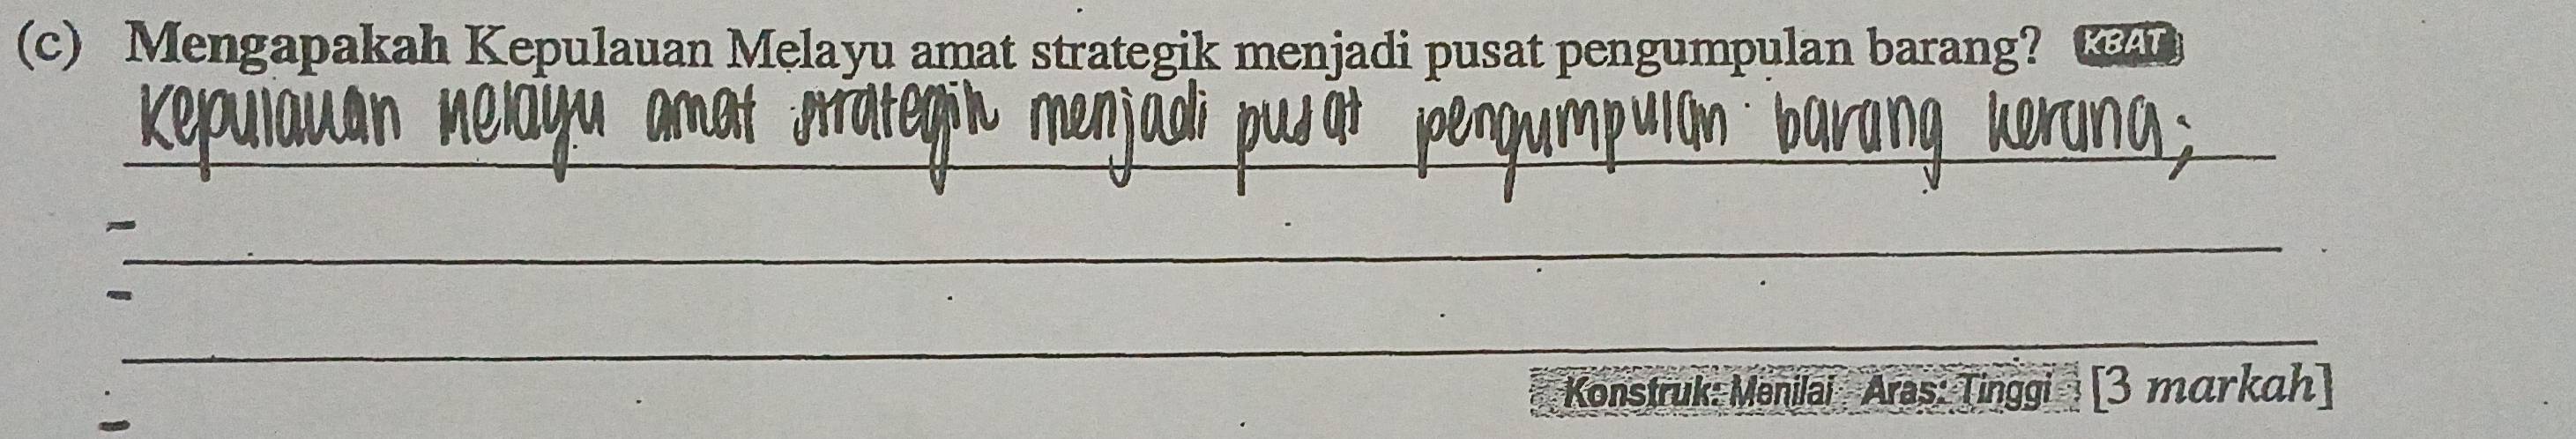 (c) Mengapakah Kepulauan Melayu amat strategik menjadi pusat pengumpulan barang? KBAT
Kepulauan Melayu amat strategik menjadi pusat pengumpulan barang kerana;
-
-
Konstruk: Menilai Aras: Tinggi [3 markah]
-